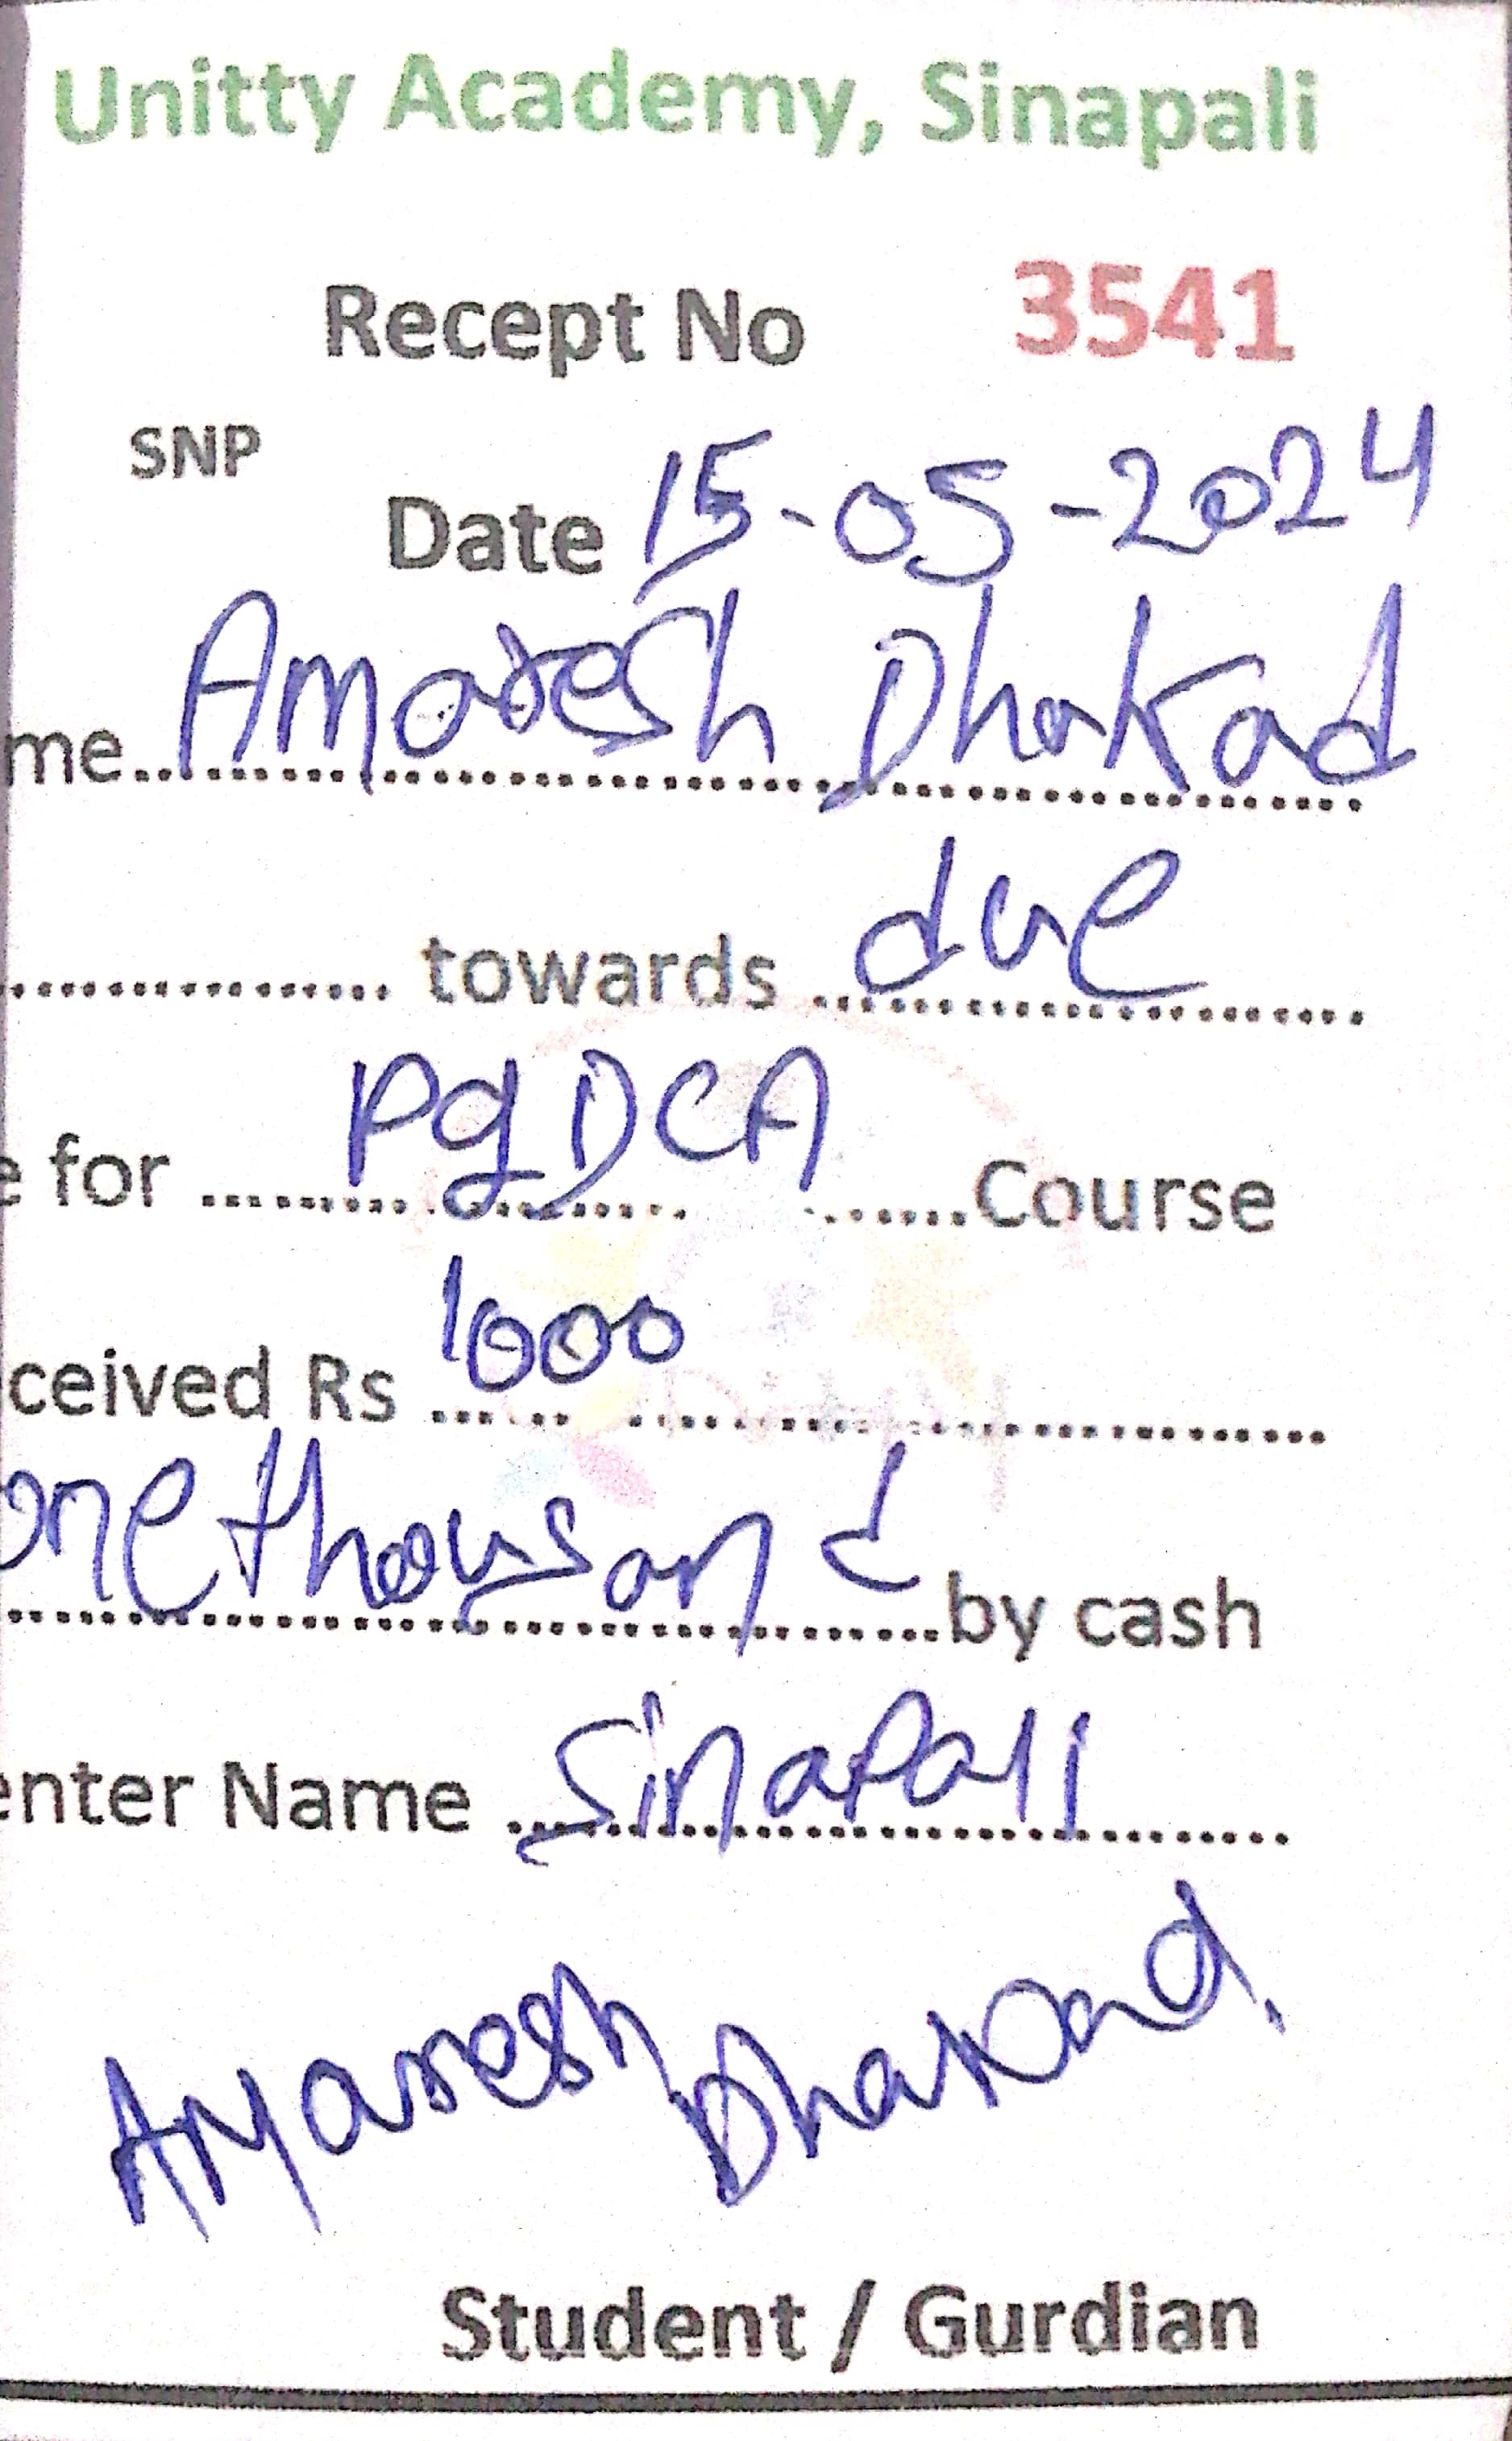 Unitty Academy, Sinapali
Recept No 3541
SNP
Date 15-05-2024
me.. Amaresh Dhakad
................. towards due
e for PgDCA Course
ceived Rs 1000
one thousand by cash
enter Name Sinapali
Amaresh Dhakad.
Student / Gurdian